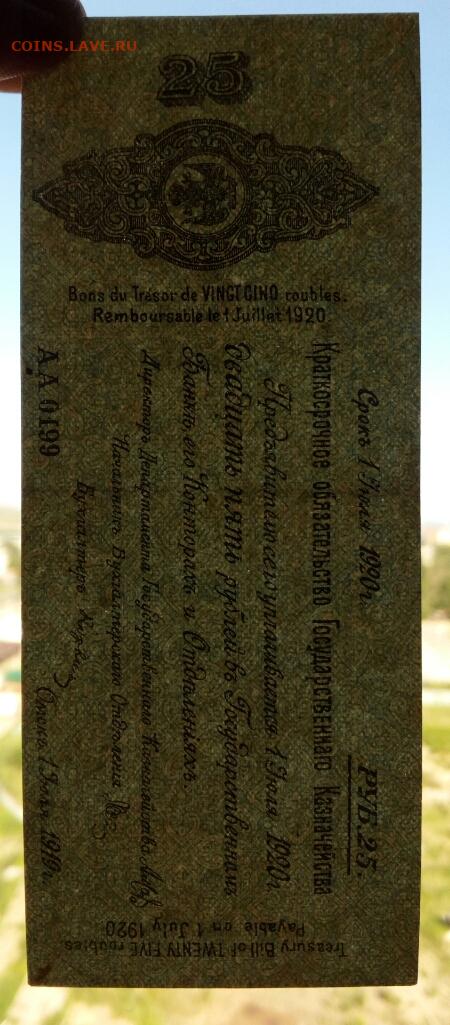 COINS.LAVE.RU
25
Bons du Trésor de VINGT CINQ roubles.
Remboursable le 1 Juillet 1920.
Срокъ 1 Июля 1920 г.
РУБ. 25.
Краткосрочное обязательство Государственнаго Казначейства
Предъявителю сего уплачивается 1 Июля 1920 г.
двадцать пять рублей въ Государственномъ
Банкѣ, его Конторахъ и Отдѣленіяхъ.
Директоръ Департамента Государственнаго Казначейства
Начальникъ Бухгалтерскаго Отдѣленія
Бухгалтеръ
АА 0199
Омскъ 1 1919 г.
Treasury Bill of TWENTY FIVE roubles
Payable on 1 July 1920